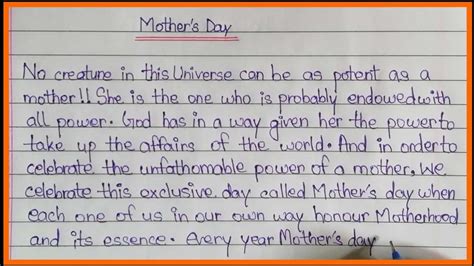 Mother's Day
No creature in this Universe can be as potent as a
mother!! She is the one who is probably endowed with
all power. God has in a way given her the power to
take up the affairs of the world. And in order to
celebrate the unfathomable power of a mother, we
celebrate this exclusive day called Mother's day when
each one of us in our own way honour Motherhood
and its essence. Every year Mother's day